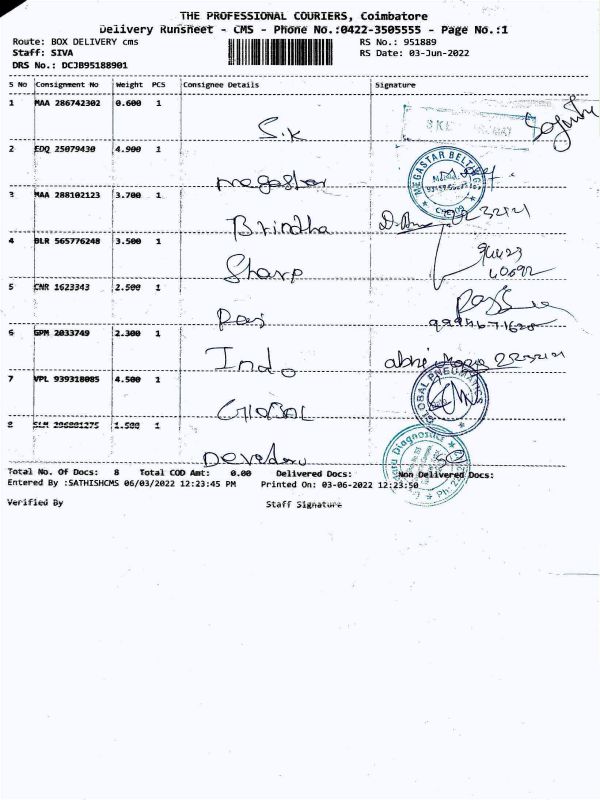 THE PROFESSIONAL COURIERS, Coimbatore
Delivery Runsheet - CMS - Phone No.:0422-3505555 - Page No.:1
Route: BOX DELIVERY cms RS No.: 951889
Staff: SIVA RS Date: 03-Jun-2022
DRS No.: DCJB95188901
S No Consignment No Weight PCS Consignee Details Signature
1 MAA 286742302 0.600 1
S.K
2 EDQ 25079430 4.900 1
megastar
MEGASTAR
3 MAA 288102123 3.700 1
Brindha
4 BLR 565776248 3.500 1
Sharp
5 CNR 1623343 2.500 1
Raj
6 GPM 2033749 2.300 1
Indo
7 VPL 939318085 4.500 1
GLOBAL PNEUMATICS
GLOBAL
8 SLM 296801275 1.500 1
Diagnostics
Total No. Of Docs: 8 Total COD Amt: 0.00 Delivered Docs: Non Delivered Docs:
Entered By :SATHISHCMS 06/03/2022 12:23:45 PM Printed On: 03-06-2022 12:23:50
Verified By Staff Signature